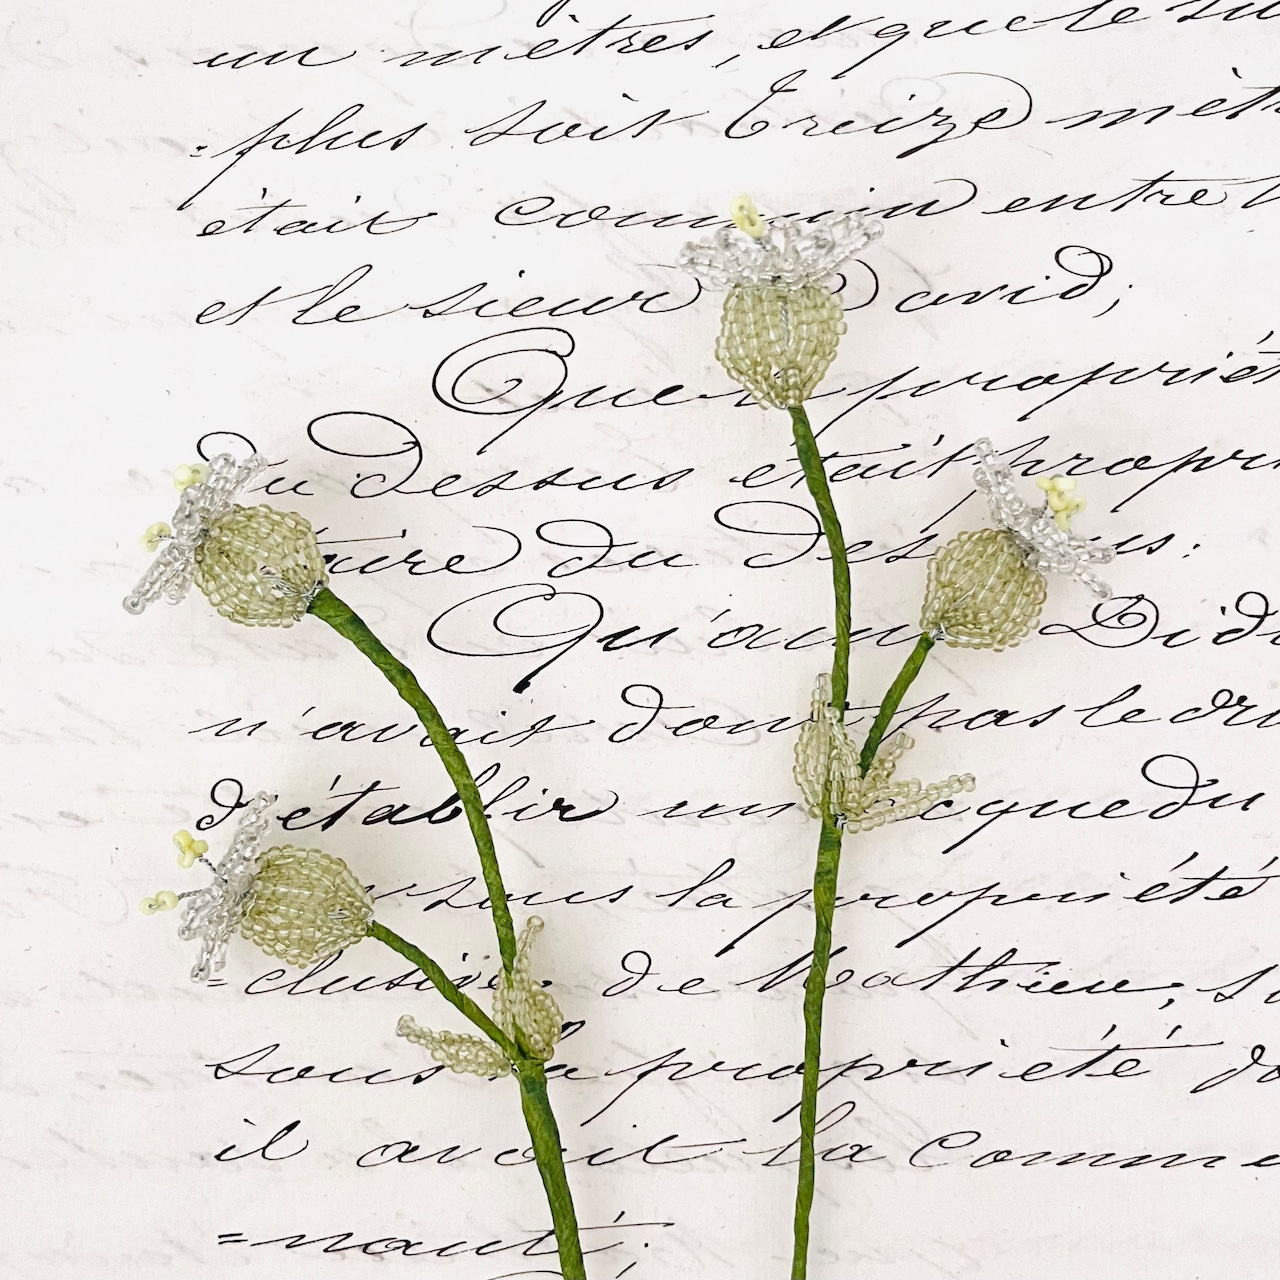 un mètres, et que le su
=plus soit Treize mèt
était commun entre l
et le sieur David;
Que propriét
Du dessus était propri
taire du dessus:
Qu'a Didi
n'avait dont pas le dro
d'établir un acque du
sous la propriété
=clusive de Mathieu, s
sous la propriété do
il avait la Comm
=nauté.